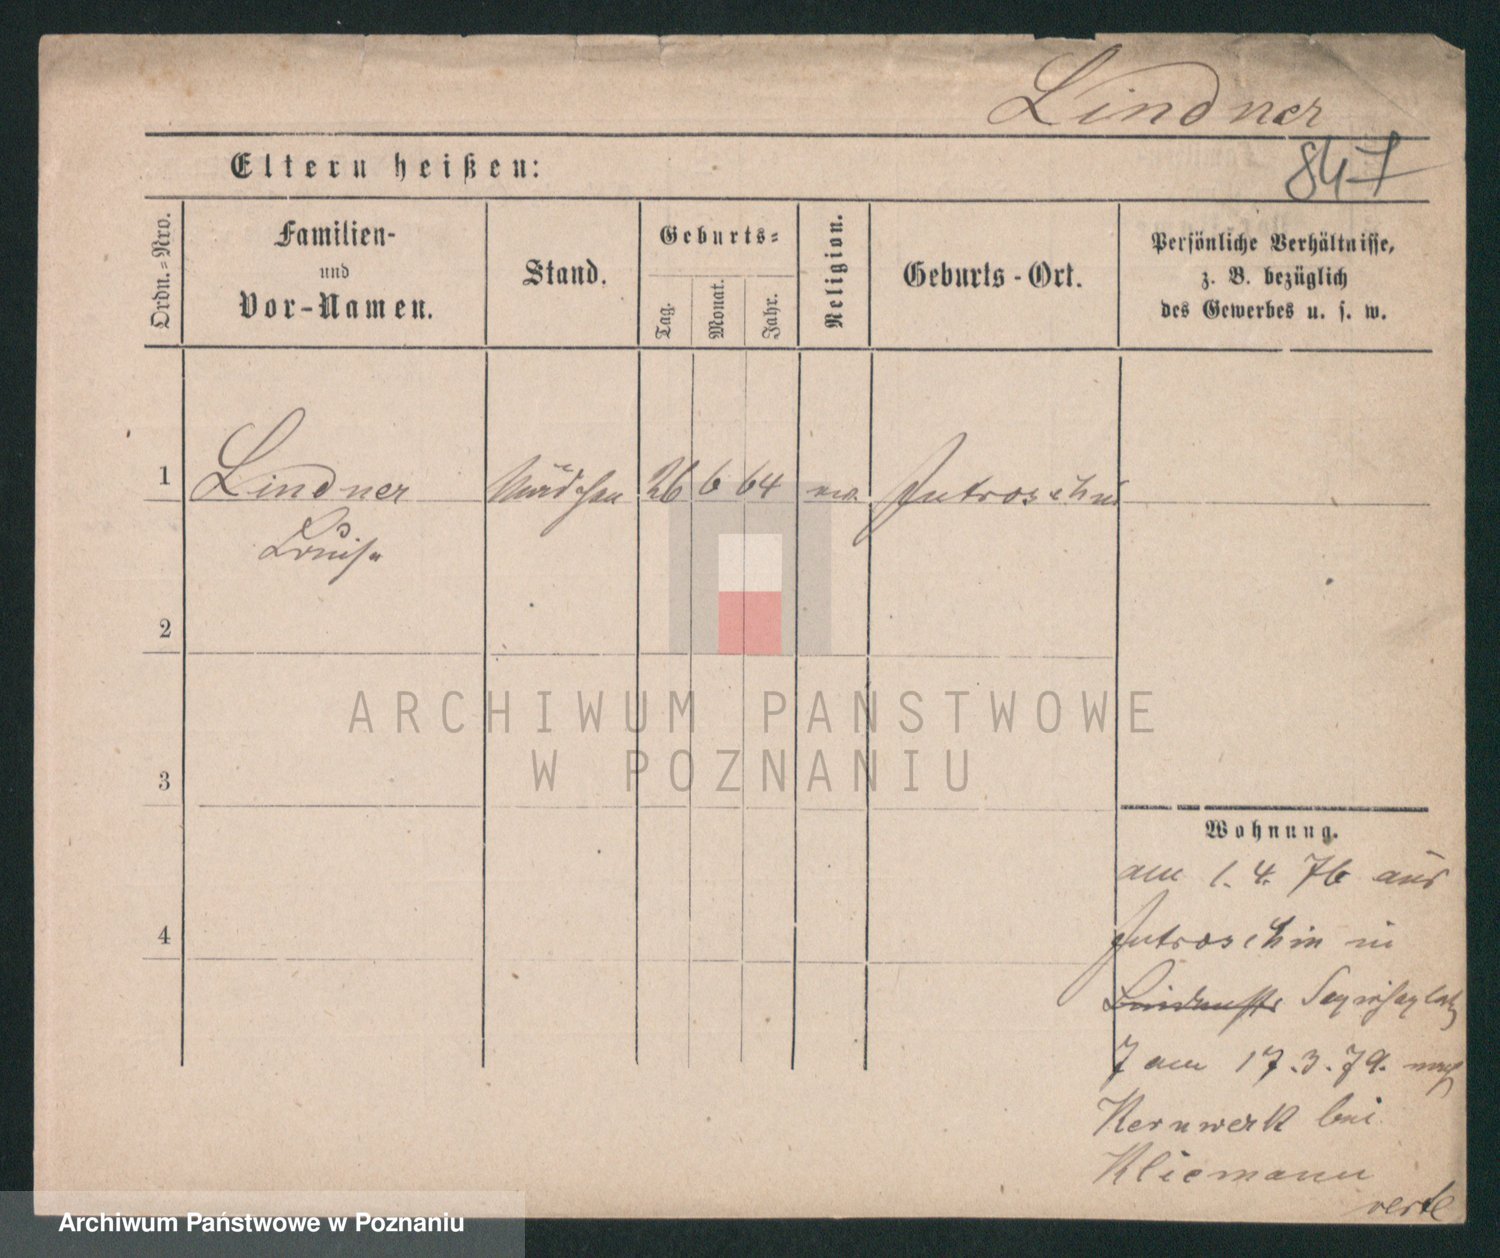 Lindner
847
Eltern heißen:
Ordn.=Nro.
Familien-
und
Vor-Namen.
Stand.
Geburts=
Tag.
Monat.
Jahr.
Religion.
Geburts-Ort.
Persönliche Verhältnisse,
z. B. bezüglich
des Gewerbes u. s. w.
1 Lindner Mädchen 26 6 64 Jutroschin
Louise
2
3
4
Wohnung.
am 1. 4. 76 aus
Jutroschin in
Sapiehaplatz
7 am 17. 3. 79. nach
Kernwerk bei
Kliemann
verte
ARCHIWUM PAŃSTWOWE
W POZNANIU
Archiwum Państwowe w Poznaniu